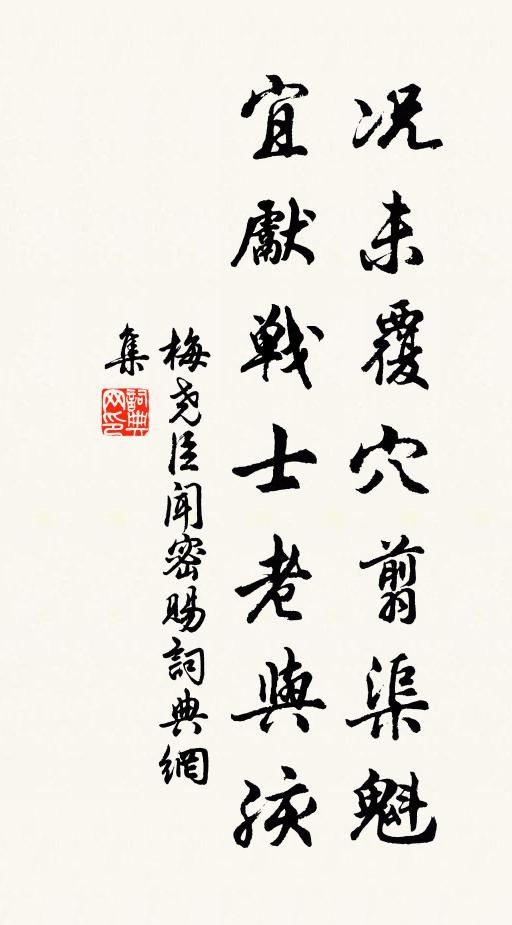 况未覆穴翦渠魁
宜獻戰士老與孩
梅堯臣聞密賜詞典網
集
詞典网印